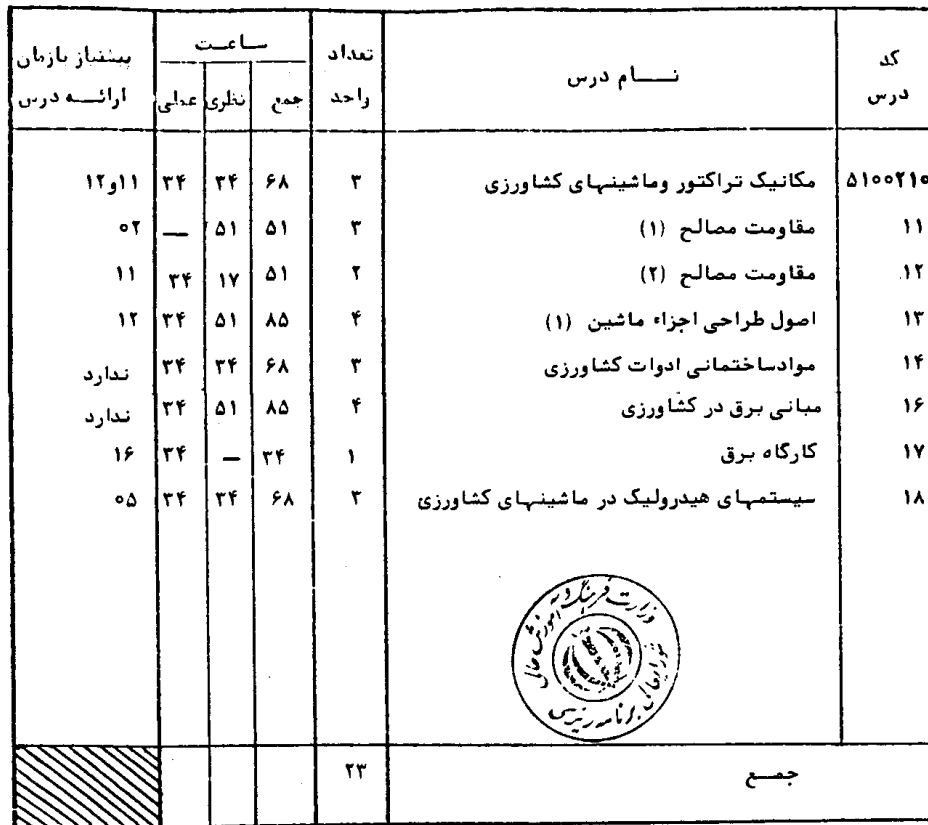 کد درس | نــــام درس | تعداد واحد | ساعــت | پیشنیاز یا زمان ارائــه درس
جمع | نظری | عملی
۵۱۰۰۲۱۰ | مکانیک تراکتور وماشینهای کشاورزی | ۳ | ۶۸ | ۳۴ | ۳۴ | ۱۱و۱۲
۱۱ | مقاومت مصالح (۱) | ۳ | ۵۱ | ۵۱ | — | ۰۲
۱۲ | مقاومت مصالح (۲) | ۲ | ۵۱ | ۱۷ | ۳۴ | ۱۱
۱۳ | اصول طراحی اجزاء ماشین (۱) | ۴ | ۸۵ | ۵۱ | ۳۴ | ۱۲
۱۴ | موادساختمانی ادوات کشاورزی | ۳ | ۶۸ | ۳۴ | ۳۴ | ندارد
۱۶ | مبانی برق در کشاورزی | ۴ | ۸۵ | ۵۱ | ۳۴ | ندارد
۱۷ | کارگاه برق | ۱ | ۳۴ | — | ۳۴ | ۱۶
۱۸ | سیستمهای هیدرولیک در ماشینهای کشاورزی | ۳ | ۶۸ | ۳۴ | ۳۴ | ۰۵
وزارت فرهنگ و آموزش عالی
شورایعالی برنامه ریزی
جمــع | ۲۳